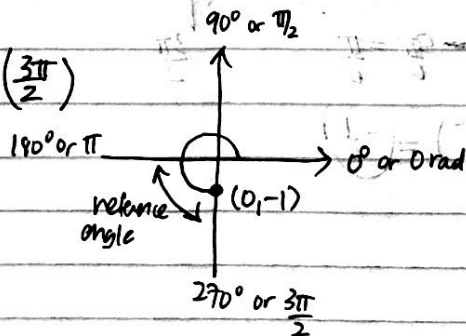 90° or π/2
(3π/2)
180° or π
0° or 0 rad
(0,-1)
angle
270° or 3π/2